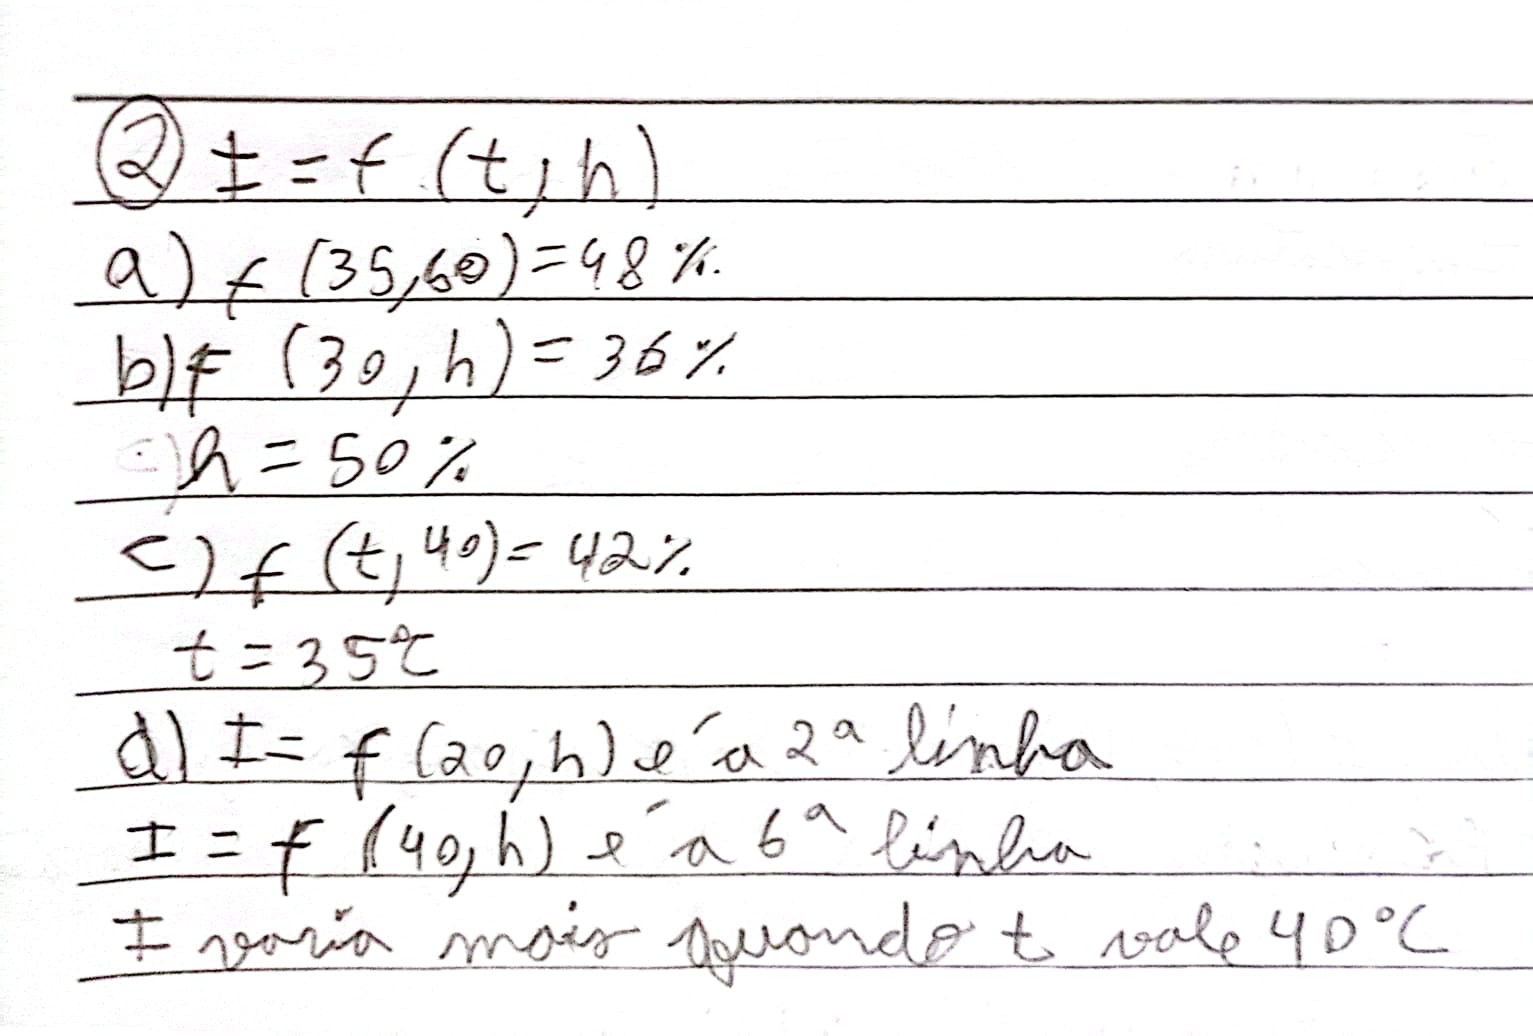 ② I = f (t, h)
a) f (35,60) = 48 %.
b) f (30, h) = 36 %.
h = 50 %.
c) f (t, 40) = 42 %.
t = 35°C
d) I = f (20, h) é a 2ª linha
I = f (40, h) é a 6ª linha
I varia mais quando t vale 40°C